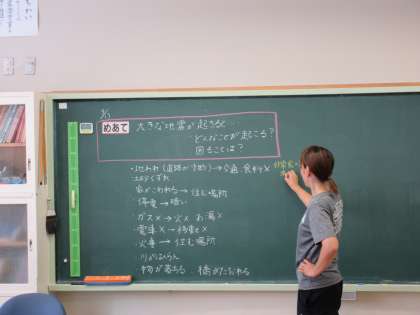 めあて 大きな地震が起きると…
どんなことが起こる?
困ることは?
・地われ(道路が寸断)→交通・食料×
・土砂くずれ
・家がこわれる→住む場所
・停電→暗い
・ガス×→火× お湯×
・電車×→移動×
・火事→住む場所
・川がはんらん
・物が落ちる ・橋がこわれる